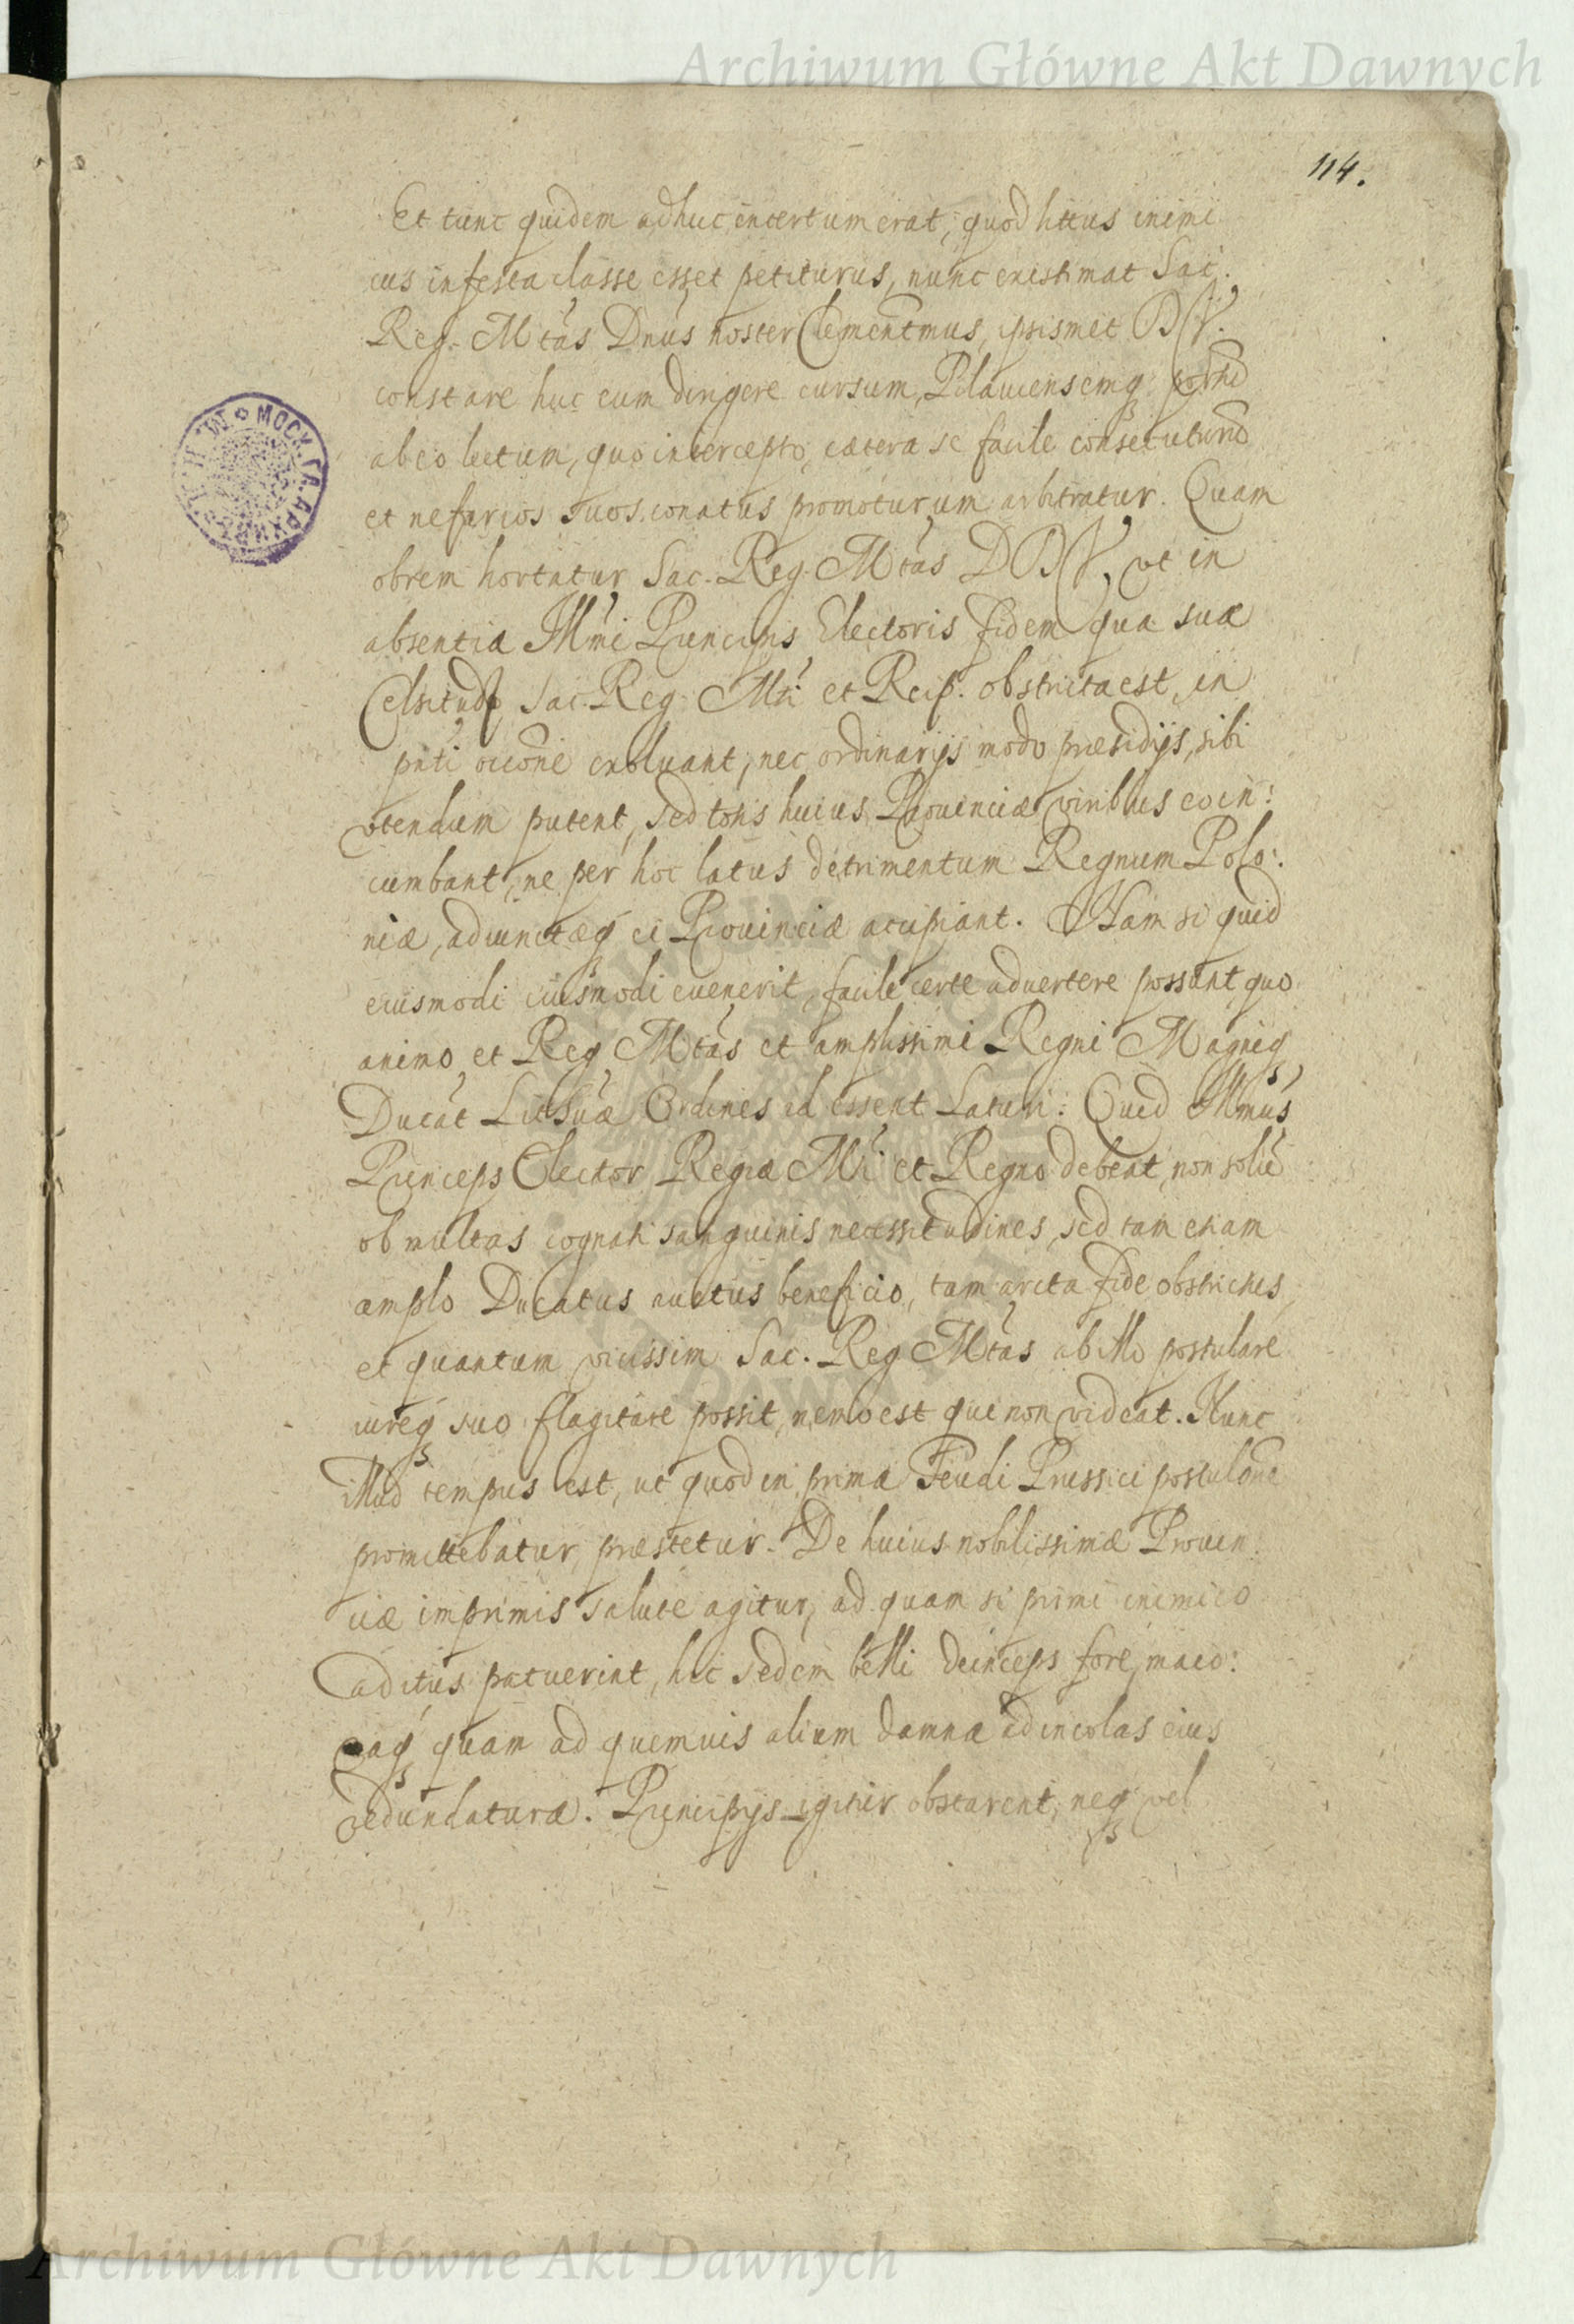 Archiwum Główne Akt Dawnych
114.
Et tunc quidem adhuc incertum erat, quod littus inimi
cus infesta classe esset petiturus, nunc existimat Sac.
Reg. Mtas Dnus noster Clementmus, ipsismet DV.
constare huc eum dirigere cursum, Pilauiensemq portũ
ab eo lectum, quo intercepto, cætera se facile consecuturũ
et nefarios suos conatus promoturum arbitratur. Quam
obrem hortatur Sac. Reg. Mtas DDV, vt in
absentia Illmi Principis Electoris fidem qua sua
Celsitudo Sac. Reg. Mti et Reip. obstricta est, in
pnti occõne exoluant, nec ordinarijs modo præsidijs, sibi
vtendum putent, sed totis huius Prouinciæ viribus eo in:
cumbant, ne per hoc latus detrimentum Regnum Polo:
niæ, adiunctæq ei Prouinciæ accipiant. Nam si quid
eiusmodi cuismodi euenerit, facile certe aduertere possunt quo
animo et Reg Mtas et amplissimi Regni Magniq
Ducat Lit Suæ Ordines id essent Laturi: Quid Illmus
Princeps Elector Regiæ Mti et Regno debeat, non solũ
ob multas cognati sanguinis necessitudines, sed tam etiam
amplo Ducatus auctus beneficio, tam arcta fide obstrictus,
et quantum vicissim Sac. Reg Mtas ab illo postulare
iureq suo flagitare possit, nemo est qui non videat. Nunc
illud tempus est, ut quod in prima Feudi Prussici postulõne
promittebatur, præstetur. De huius nobilissimæ Prouin:
ciæ imprimis salute agitur, ad quam si primi inimico
aditus patuerint, hic sedem belli deinceps fore, maio:
raq quam ad quemuis alium damna ad incolas eius
redundatura. Principijs igitur obstarent, neq vel
Archiwum Główne Akt Dawnych